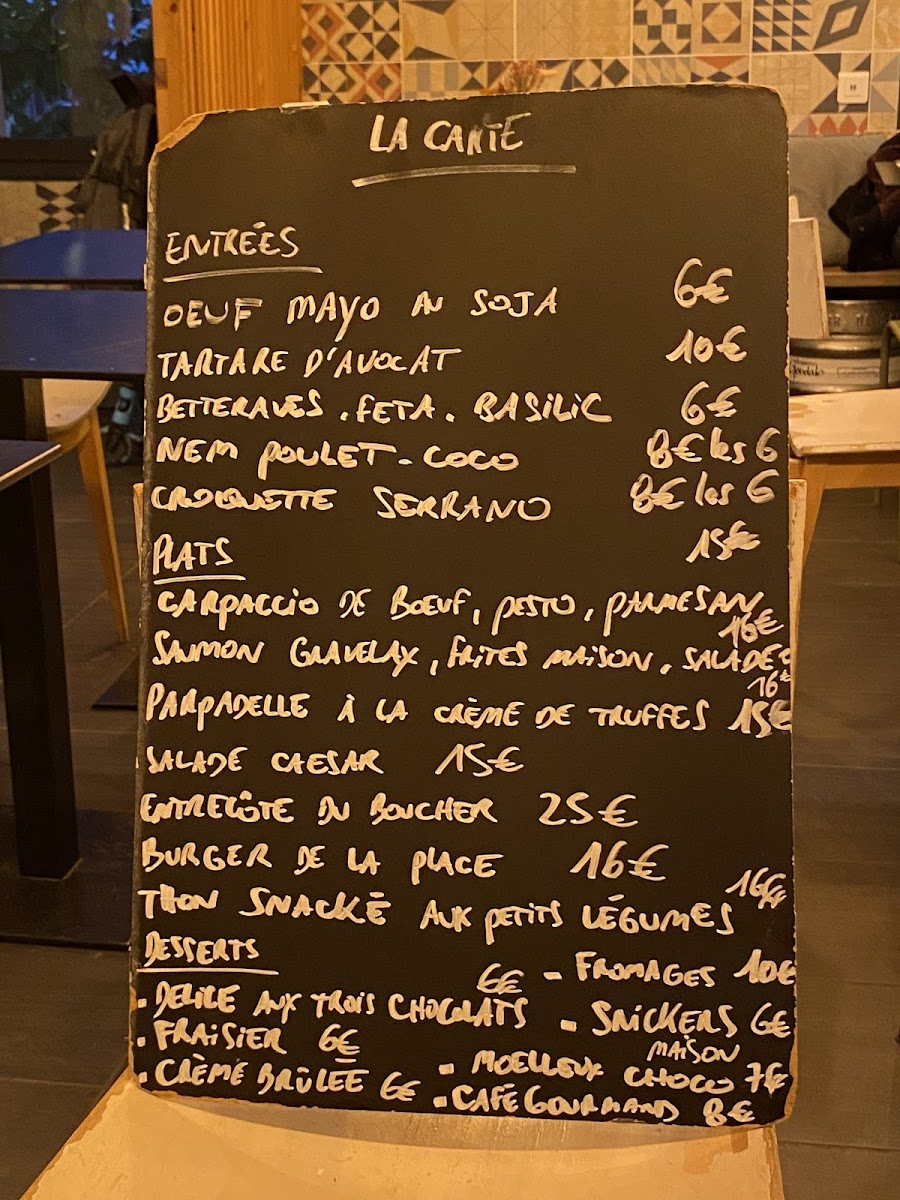 LA CARTE
ENTRÉES
OEUF MAYO AU SOJA 6€
TARTARE D'AVOCAT 10€
BETTERAVES . FETA . BASILIC 6€
NEM POULET - COCO 8€ les 6
CROQUETTE SERRANO 8€ les 6
PLATS 15€
CARPACCIO DE BOEUF, PESTO, PARMESAN
16€
SAUMON GRAVELAX, FRITES MAISON, SALADE
16€
PARPADELLE À LA CRÈME DE TRUFFES 15€
SALADE CAESAR 15€
ENTRECÔTE DU BOUCHER 25€
BURGER DE LA PLACE 16€
16€
THON SNACKÉ AUX PETITS LÉGUMES
DESSERTS
6€ - FROMAGES 10€
- DELICE AUX TROIS CHOCOLATS - SNICKERS 6€
MAISON
- FRAISIER 6€ - MOELLEUX CHOCO 7€
- CRÈME BRÛLÉE 6€ - CAFÉ GOURMAND 8€